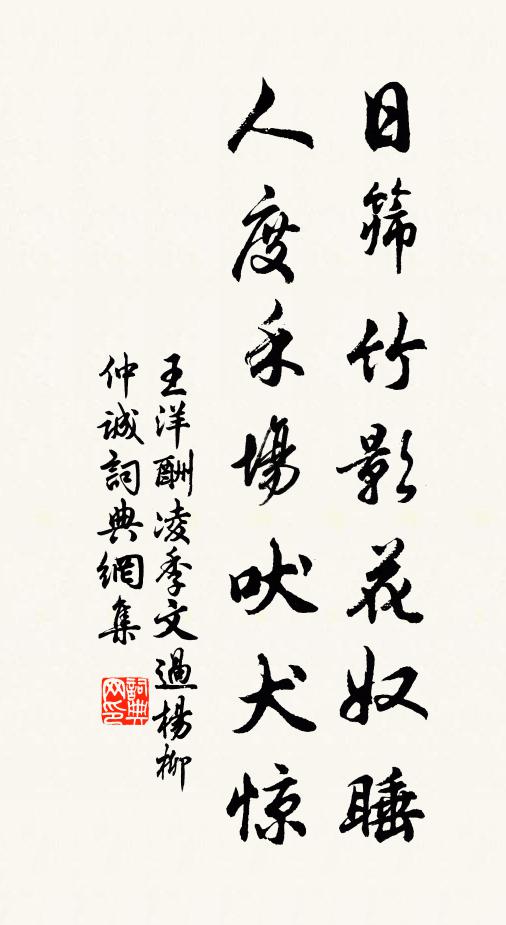 日筛竹影花奴睡
人度禾場吠犬惊
王洋酬凌季文過楊柳
仲誠詞典網集
詞典
网印